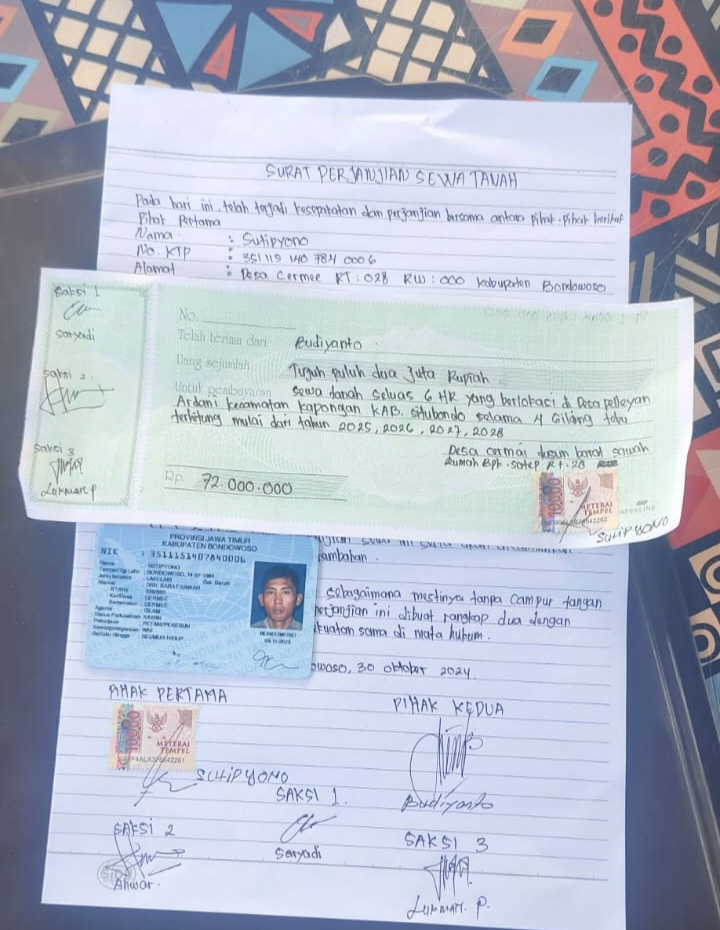 SURAT PERJANJIAN SEWA TANAH
Pada hari ini, telah terjadi kesepatatan dan perjanjian bersama antara pihat-pihat berikut
Pihat Pertama
Nama : Sutipyono
No. KTP : 351115 140 784 0006
Alamat : Desa Cermee RT : 028 RW : 000 Kabupaten Bondowoso
Saksi 1
Saryadi
Saksi 2
Saksi 3
Lukman. P
No.
Telah terima dari Budiyanto
Uang sejumlah Tujuh puluh dua Juta Rupiah
Untuk pembayaran Sewa tanah seluas 6 HR yang berlokasi di Desa
Ardani kecamatan Kapongan KAB. Situbondo selama 4 Giling tebu
terhitung mulai dari tahun 2025, 2026, 2027, 2028
Desa cermai dusun barat sawah
Rumah Bph. Sotep Rt. 28
Rp. 72.000.000
METERAI
TEMPEL
SUTIPYONO
PROVINSI JAWA TIMUR
KABUPATEN BONDOWOSO
NIK : 3511151407840006
Nama : SUTIPYONO
BONDOWOSO
SEUMUR HIDUP
ambatan.
sebagaimana mestinya tanpa campur tangan
perjanjian ini dibuat rangkap dua dengan
kuatan sama di mata hukum.
owoso, 30 oktober 2024.
PIHAK PERTAMA
PIHAK KEDUA
10000
METERAI
TEMPEL
SUTIPYONO
Budiyanto
SAKSI 1.
Saryadi
SAKSI 2
Ahwar.
SAKSI 3
LUKMAN. P.